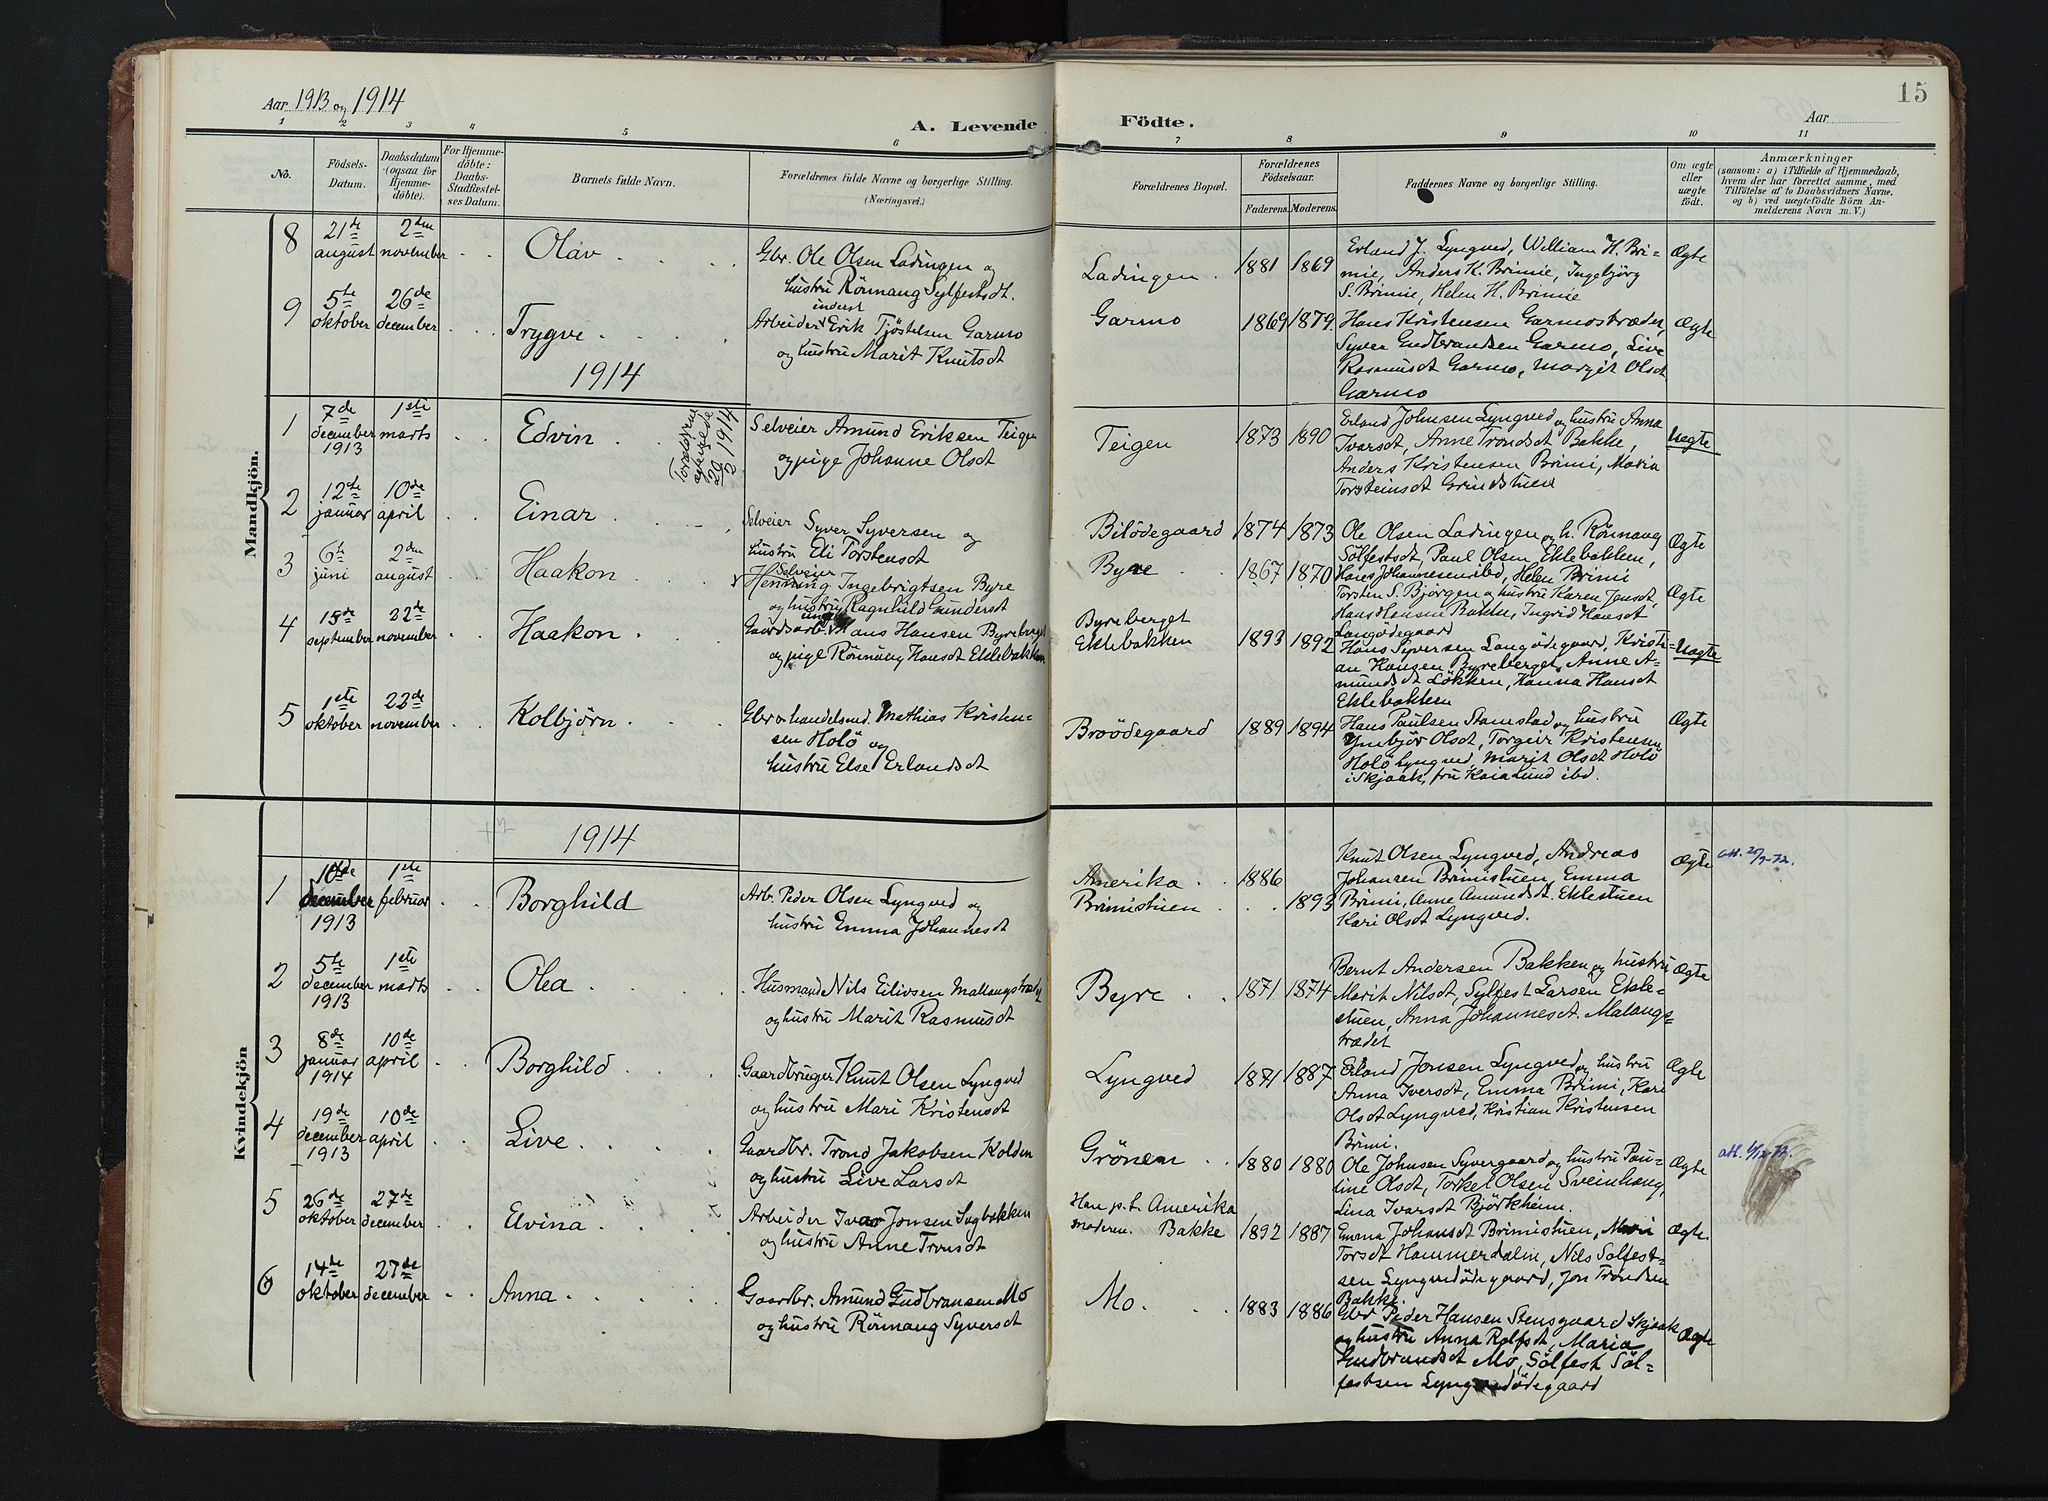 Aar 1913 og 1914
A. Levende Födte.
Aar
15
1 2 3 4 5 6 7 8 9 10 11
No.
Födsels-Datum.
Daabsdatum (ogsaa for Hjemmedöbte).
For Hjemmedöbte: Daabs-Stadfæstelses Datum.
Barnets fulde Navn.
Forældrenes fulde Navne og borgerlige Stilling. (Næringsvei.)
Forældrenes Bopæl.
Forældrenes Födselsaar.
Faderens. Moderens.
Faddernes Navne og borgerlige Stilling.
Om ægte eller uægte födt.
Anmærkninger
(saasom: a) i Tilfælde af Hjemmedaab, hvem der har forrettet samme, med Tilföielse af to Daabsvidners Navne, og b) ved uægtefödte Börn Anmelderens Navn m. V.)
Mandkjön.
8 21de august 2den november Olav
Gbr. Ole Olsen Ladingen og
hustru Rönnaug Sylfestsdt.
Ladingen 1881 1869
Erland J. Lyngved, William H. Bri-
mie, Anders K. Brimie, Ingebjörg
S. Brimie, Helen H. Brimie
Ægte
9 5te oktober 26de december Trygve
inderst
Arbeider Erik Tjöstelsen Garmo
og hustru Marit Knutsdt
Garmo 1869 1879.
Hans Kristensen Garmostrædet,
Syver Gudbrandsen Garmo, Live
Rasmusdt Garmo, Margit Olsdt
Garmo
Ægte
1914
1 7de december 1913 1ste marts Edvin
20/2 1914
Selveier Amund Eriksen Teigen
og pige Johanne Olsdt
Teigen 1873 1890
Erland Johnsen Lyngved og hustru Anna
Ivarsdt, Anne Trondsdt Bakke,
Anders Kristensen Brimi, Maria
Torsteinsdt Grindstuen
Uægte
2 12te januar 10de april Einar
Selveier Syver Syversen og
hustru Eli Torstensdt
Bilödegaard 1874 1873
Ole Olsen Ladingen og h. Rönnaug
Sölfestsdt, Paul Olsen Eklebakken,
Hans Johannesen ibid, Helen Brimi
Ægte
3 6te juni 2den august Haakon
Selveier
Henning Ingebrigtsen Byre
og hustru Ragnhild Gundersdt
Byre 1867 1870
Torstin S. Bjorgen og hustru Karen Jonsdt,
Hans Hansen Bakke, Ingrid Hansdt
Langödegaard
Ægte
4 15de september 22de november Haakon
ungk.
Gaardsarb. Hans Hansen Byreberget
og pige Rönnaug Hansdt Eklebakken
Byreberget
Eklebakken 1893 1892
Hans Syversen Langödegaard, Kristi-
an Hansen Byreberget, Anne A-
mundsdt Lökken, Hanna Hansdt
Eklebakken
Uægte
5 1ste oktober 22de november Kolbjörn
Gbr. & handelsmd. Mathias Kristen-
sen Holö og
hustru Else Erlandsdt
Broödegaard 1889 1894
Hans Paulsen Stamstad og hustru
Ymbjör Olsdt, Torgeir Kristensen
Holö Lyngved, Marit Olsdt Holö
i Skjaak, fru Kaia Lund ibd.
Ægte
Kvindekjön
1914
1 10de december 1913 1ste februar Borghild
Arb. Peder Olsen Lyngved og
hustru Emma Johannesdt
Amerika 1886
Brimistuen 1893
Knut Olsen Lyngved, Andreas
Johansen Brimistuen, Emma
Brimi, Anne Amundsdt. Eklestuen
Kari Olsdt Lyngved.
Ægte
2 5te december 1913 1ste marts Olea
Husmand Nils Eilivsen Mallangstrædet
og hustru Marit Rasmusdt
Byre 1871 1874
Bernt Andersen Bakken og hustru
Marit Nilsdt, Sylfest Larsen Ekle-
stuen, Anna Johannesdt. Malangs-
trædet
Ægte
3 8de januar 1914 10de april Borghild
Gaardbruger Knut Olsen Lyngved
og hustru Mari Kristensdt
Lyngved 1871 1887
Erland Jonsen Lyngved og hustru
Anna Iversdt, Emma Brimi, Kari
Olsdt Lyngved, Kristian Kristensen
Brimi.
Ægte
4 19de december 1913 10de april Live
Gaardbr. Trond Jakobsen Kolden
og hustru Live Larsdt
Grönen 1880 1880
Ole Johnsen Syvergaard og hustru Pau-
line Olsdt, Torkel Olsen Sveinhaug,
Lina Ivarsdt Björkheim.
Ægte
5 26de oktober 27de december Elvina
Arbeider Ivar Jonsen Sugbakken
og hustru Anne Tronsdt
Han p.t. Amerika
Moderen Bakke 1892 1887
Emma Johansdt Brimistuen, Mari
Torsdt Hammerdalm, Nils Sölfest-
sen Lyngvedödegaard, Jon Trondsen
Bakke
Ægte
6 14de oktober 27de december Anna
Gaardbr. Amund Gudbransen Mo
og hustru Rönnaug Syversdt
Mo. 1883 1886
Gbr Peder Hansen Stensgaard Skjaak
og hustru Anna Rolfsdt, Maria
Gudbrandsdt Mo, Sölfest Söl-
festsen Lyngvedödegaard
Ægte